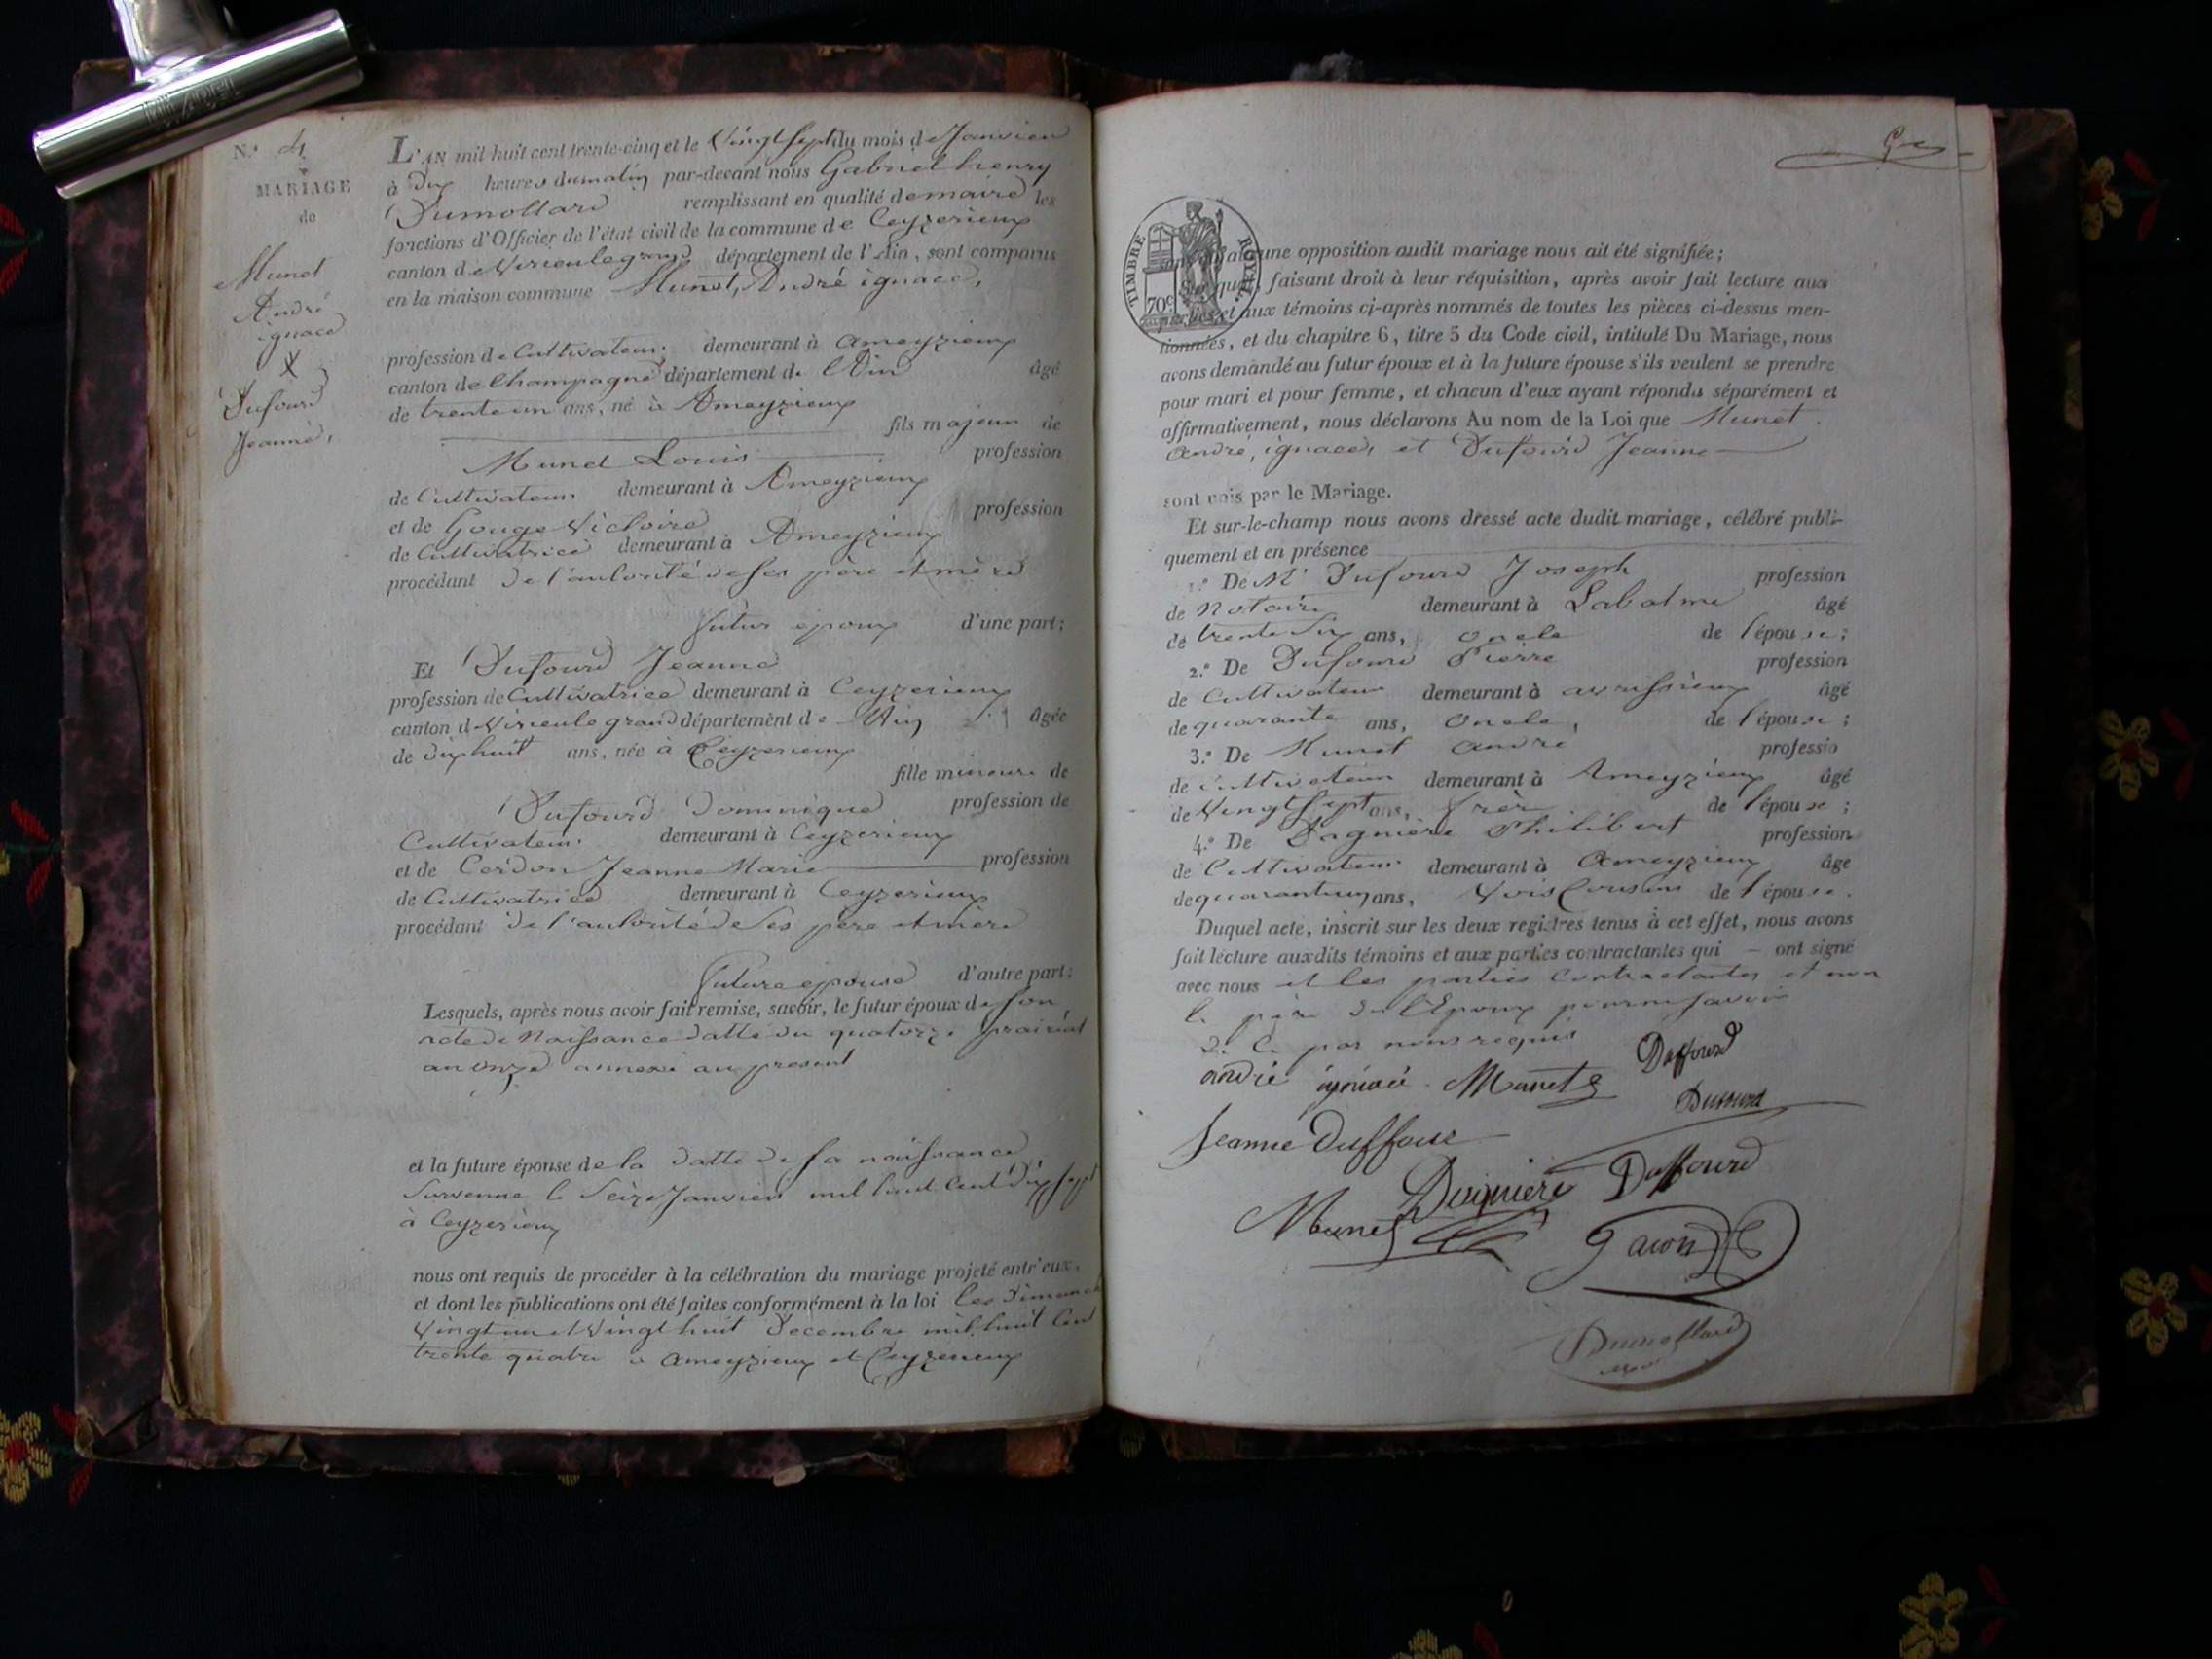 N.° 4
MARIAGE
de
Munet
André
ignace
X
Dufourd
Jeanne,
L'AN mil huit cent trente-cinq et le Vingt Sept du mois de Janvier
à dix heures du matin par-devant nous Gabriel henry
Dumollard remplissant en qualité de maire les
fonctions d'Officier de l'état civil de la commune de Ceyzerieux
canton de Virieulegrand département de l'Ain, sont comparus
en la maison commune Munet, André ignace,
profession de Cultivateur demeurant à Ameyzieux
canton de Champagne département de l'Ain âgé
de trente un ans, né à Ameyzieux
fils majeur de
Munet Louis profession
de Cultivateur demeurant à Ameyzieux
et de Gouge Victoire profession
de Cultivatrice demeurant à Ameyzieux
procédant de l'autorité de ses père et mère
futur epoux d'une part;
Et Dufourd Jeanne
profession de Cultivatrice demeurant à Ceyzerieux
canton de Virieulegrand département de l'Ain âgée
de dix huit ans, née à Ceyzerieux
fille mineure de
Dufourd Dominique profession de
Cultivateur demeurant à Ceyzerieux
et de Cerdon Jeanne Marie profession
de Cultivatrice demeurant à Ceyzerieux
procédant de l'autorité de ses père et mère
future epouse d'autre part;
Lesquels, après nous avoir fait remise, savoir, le futur époux de son
acte de Naissance datté du quatorze prairial
an onze annexé au present
et la future épouse de la datte de sa naissance
survenue le Seize Janvier mil huit cent dix sept
à Ceyzerieux
nous ont requis de procéder à la célébration du mariage projeté entr'eux,
et dont les publications ont été faites conformément à la loi les Dimanche
Vingt un et Vingt huit Decembre mil huit Cent
trente quatre à Ameyzieux et Ceyzerieux
TIMBRE ROYAL
70c
aucune opposition audit mariage nous ait été signifiée;
faisant droit à leur réquisition, après avoir fait lecture aux
parties et aux témoins ci-après nommés de toutes les pièces ci-dessus men-
tionnées, et du chapitre 6, titre 5 du Code civil, intitulé Du Mariage, nous
avons demandé au futur époux et à la future épouse s'ils veulent se prendre
pour mari et pour femme, et chacun d'eux ayant répondu séparément et
affirmativement, nous déclarons Au nom de la Loi que Munet
André, ignace, et Dufourd Jeanne
sont unis par le Mariage.
Et sur-le-champ nous avons dressé acte dudit mariage, célébré publi-
quement et en présence
1.° De Mr Dufourd Joseph profession
de Notaire demeurant à Labalme âgé
de trente Six ans, oncle de l'épouse;
2.° De Dufourd Pierre profession
de Cultivateur demeurant à avrissieux âgé
de quarante ans, Oncle, de l'épouse;
3.° De Munet André professio
de Cultivateur demeurant à Ameyzieux âgé
de Vingt Sept ans, frère de l'épouse;
4.° De Dagnière Philibert profession
de Cultivateur demeurant à Ameyzieux âgé
de quarantun ans, Cousins de l'épouse.
Duquel acte, inscrit sur les deux registres tenus à cet effet, nous avons
fait lecture auxdits témoins et aux parties contractantes qui — ont signé
avec nous et les parties Contractantes et non
le père de l'Epoux pour ne savoir
de ce par nous requis
andré ignace Munet
Duffourd
Dufourd
Jeanne Duffour
Dagniere
Duffourd
Munet
Gacon
Dumollard